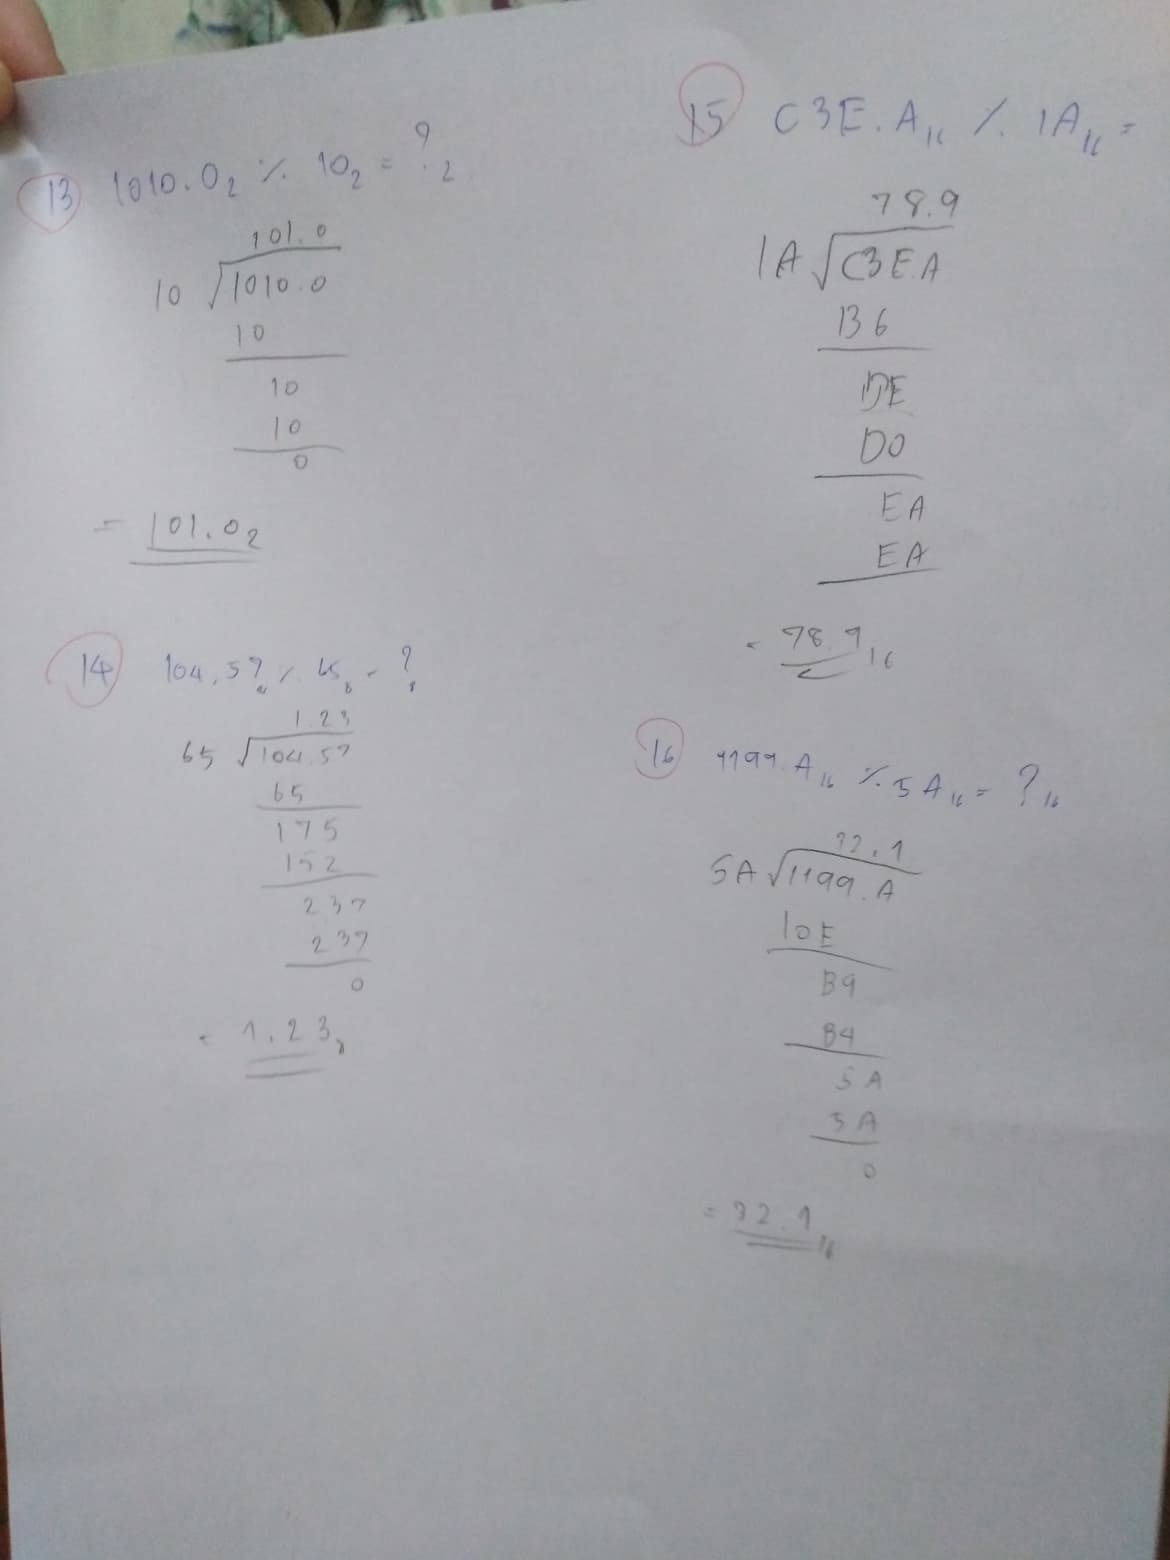 13 1010.0₂ ٪ 10₂ = ?₂
101.0
10 √1010.0
10
10
10
0
= 101.0₂
14 104.57₈ ٪ 65₈ = ?₈
1.23
65 √104.57
65
175
152
237
237
0
= 1.23₈
15 C3E.A₁₆ ٪ 1A₁₆ =
78.9
1A √C3E.A
B6
DE
D0
EA
EA
= 78.9₁₆
16 1199.A₁₆ ٪ 5A₁₆ = ?₁₆
32.1
5A √1199.A
10E
B9
B4
5A
5A
0
= 32.1₁₆